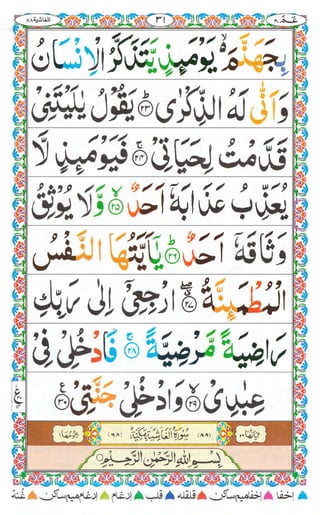 عم ٣٠
٣١
الغاشية ٨٨
بِجَهَنَّمَ يَوْمَىِٕذٍ يَّتَذَكَّرُ الْاِنْسَانُ
وَاَنّٰى لَهُ الذِّكْرٰى ﴿٢٣﴾ يَقُوْلُ يٰلَيْتَنِىْ
قَدَّمْتُ لِحَيَاتِىْ ﴿٢٤﴾ فَيَوْمَىِٕذٍ لَّا
يُعَذِّبُ عَذَابَهٗۤ اَحَدٌ ﴿٢٥﴾ وَّلَا يُوْثِقُ
وَثَاقَهٗۤ اَحَدٌ ﴿٢٦﴾ يٰۤاَيَّتُهَا النَّفْسُ
الْمُطْمَىِٕنَّةُ ﴿٢٧﴾ ارْجِعِىْۤ اِلٰى رَبِّكِ
رَاضِيَةً مَّرْضِيَّةً ﴿٢٨﴾ فَادْخُلِىْ فِىْ
عِبٰدِىْ ﴿٢٩﴾ وَادْخُلِىْ جَنَّتِىْ ﴿٣٠﴾
سُوْرَةُ الْغَاشِيَةِ مَكِّيَّةٌ (٦٨)
بِسْمِ اللهِ الرَّحْمٰنِ الرَّحِيْمِ
اخفا اخفا میم ساکن قلقلہ قلب ادغام ادغام میم ساکن غنه